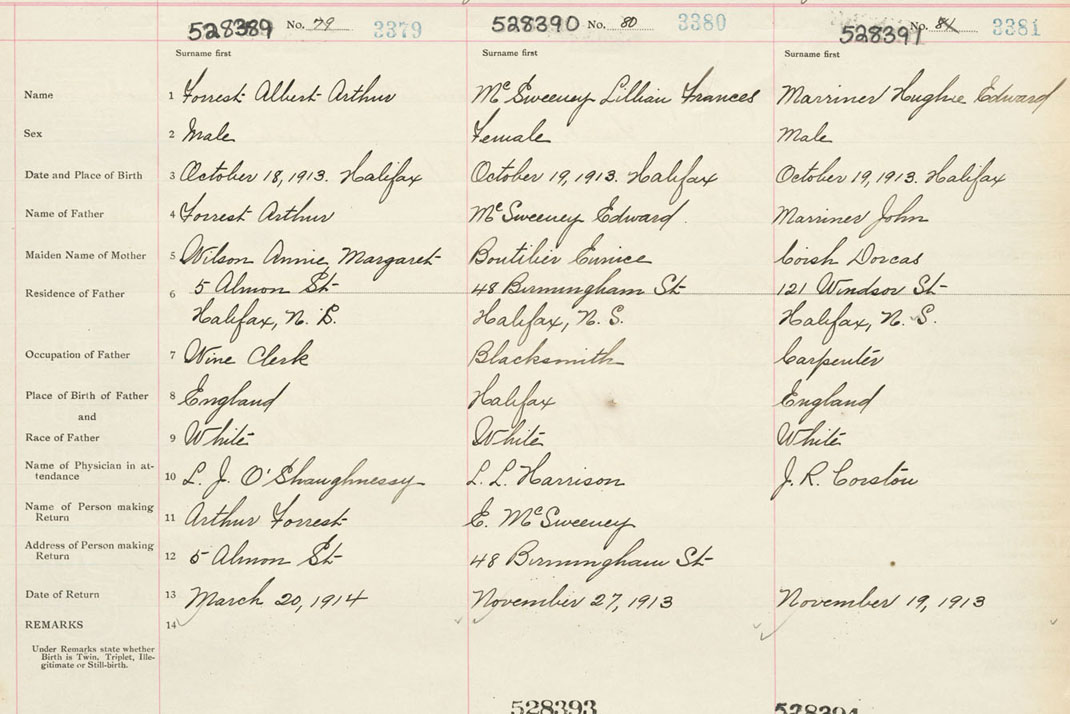 528389 No. 79 3379 528390 No. 80 3380 528391 No. 81 3381
Surname first Surname first Surname first
Name 1 Forrest Albert Arthur McSweeney Lillian Frances Marriner Hughie Edward
Sex 2 Male Female Male
Date and Place of Birth 3 October 18, 1913. Halifax October 19, 1913. Halifax October 19, 1913. Halifax
Name of Father 4 Forrest Arthur McSweeney Edward. Marriner John
Maiden Name of Mother 5 Wilson Annie Margaret Boutilier Eunice Coish Dorcas
Residence of Father 6 5 Almon St 48 Birmingham St 121 Windsor St
Halifax, N. S. Halifax, N. S. Halifax, N. S.
Occupation of Father 7 Wine Clerk Blacksmith Carpenter
Place of Birth of Father 8 England Halifax England
and
Race of Father 9 White White White
Name of Physician in at-
tendance 10 L. J. O'Shaughnessy L. L. Harrison J. R. Corston
Name of Person making
Return 11 Arthur Forrest E. McSweeney
Address of Person making
Return 12 5 Almon St 48 Birmingham St
Date of Return 13 March 20, 1914 November 27, 1913 November 19, 1913
REMARKS 14
Under Remarks state whether
Birth is Twin, Triplet, Ille-
gitimate or Still-birth.
528393 528394